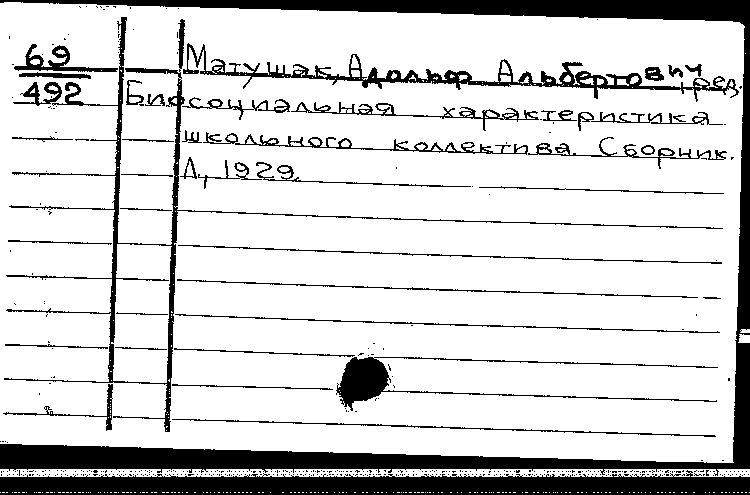 69 Матушак, Адольф Альбертович, ред.
492 Биосоциальная характеристика
школьного коллектива. Сборник.
Л., 1929.